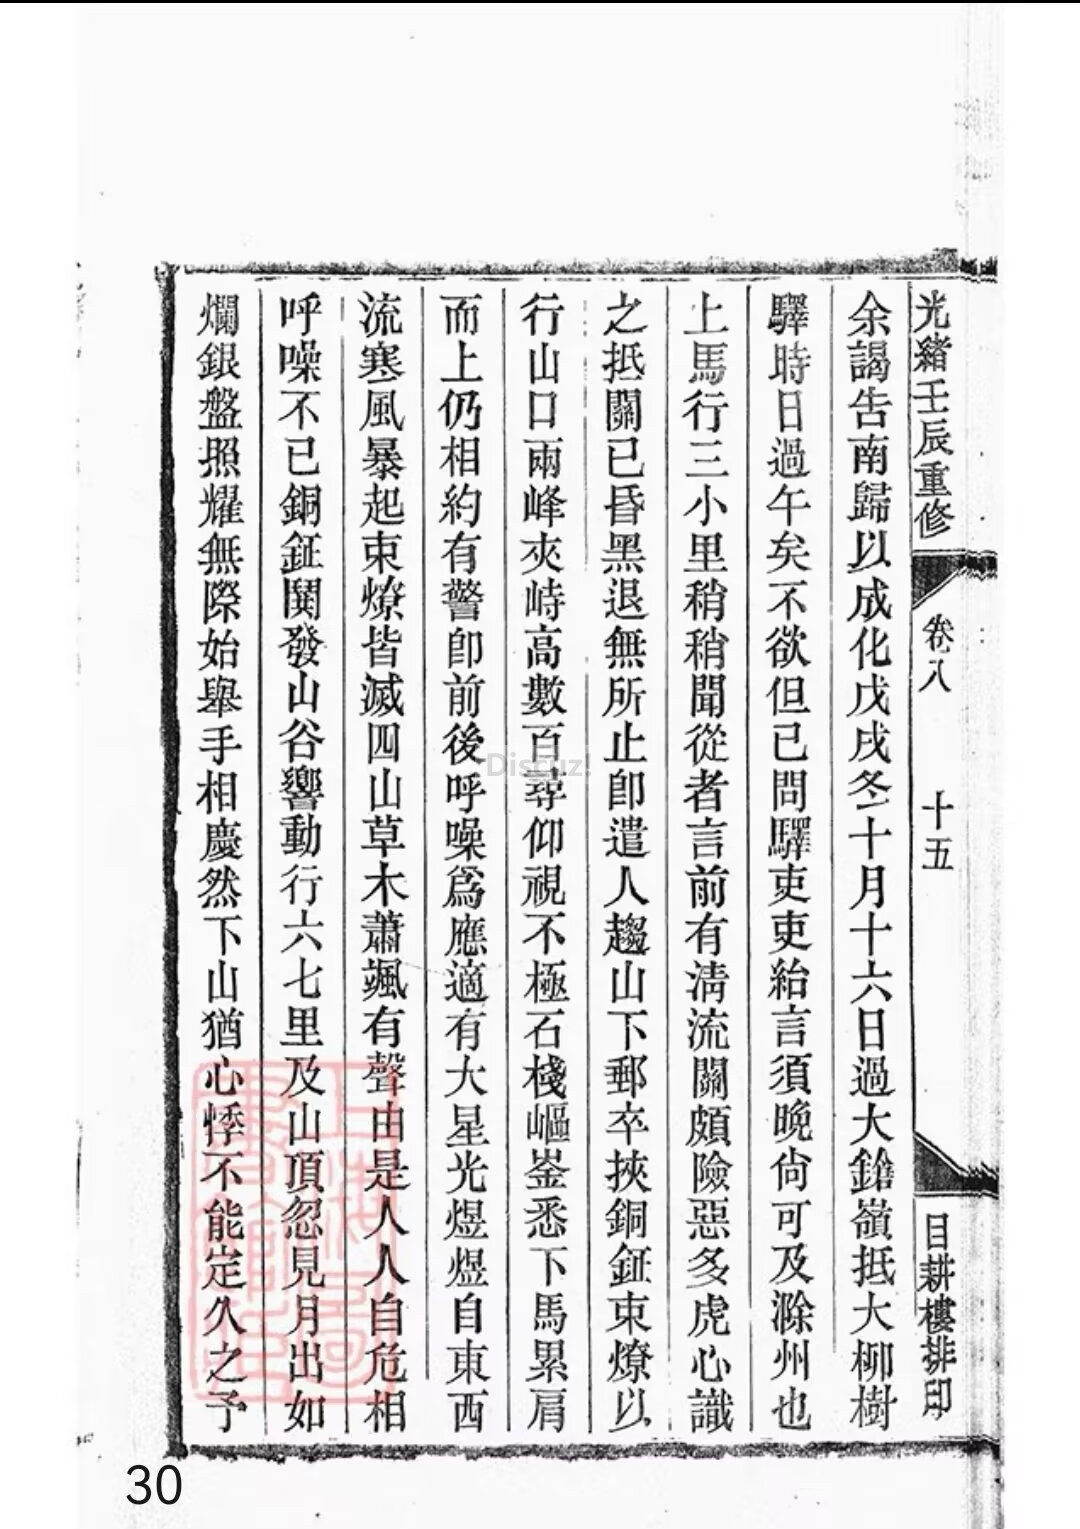 光緒壬辰重修
卷八
十五
目耕樓排印
余謁告南歸以成化戊戌冬十月十六日過大鎗嶺抵大柳樹
驛時日過午矣不欲但已問驛吏吏紿言須晚尙可及滁州也
上馬行三小里稍稍聞從者言前有淸流關頗險惡多虎心識
之抵關已昏黑退無所止卽遣人趨山下郵卒挾銅鉦束燎以
行山口兩峰夾峙高數百尋仰視不極石棧嶇崟悉下馬累肩
而上仍相約有警卽前後呼噪爲應適有大星光煜煜自東西
流寒風暴起束燎皆滅四山草木蕭颯有聲由是人人自危相
呼噪不已銅鉦鬨發山谷響動行六七里及山頂忽見月出如
爛銀盤照耀無際始舉手相慶然下山猶心悸不能定久之予
上海圖
書館藏
Discuz!
30